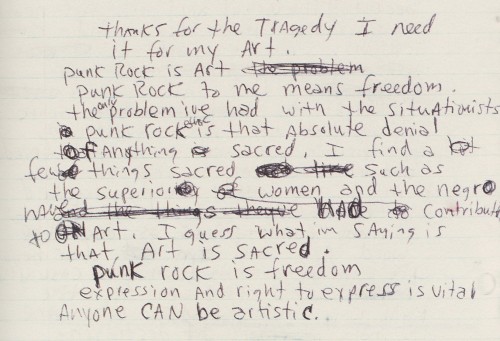 thanks for the TRAgedy I need
it for my Art.
punk Rock is Art the problem
punk Rock to me means freedom.
the only problem ive had with the situationists
punk rock ethic is that Absolute denial
of Anything is sacred. I find a
few things sacred such as
the superiority of women and the negro
have and the things theyve HAD to contribute
to Art. I guess what im saying is
that Art is sacred.
punk rock is freedom
expression And right to express is vital
Anyone CAN be artistic.